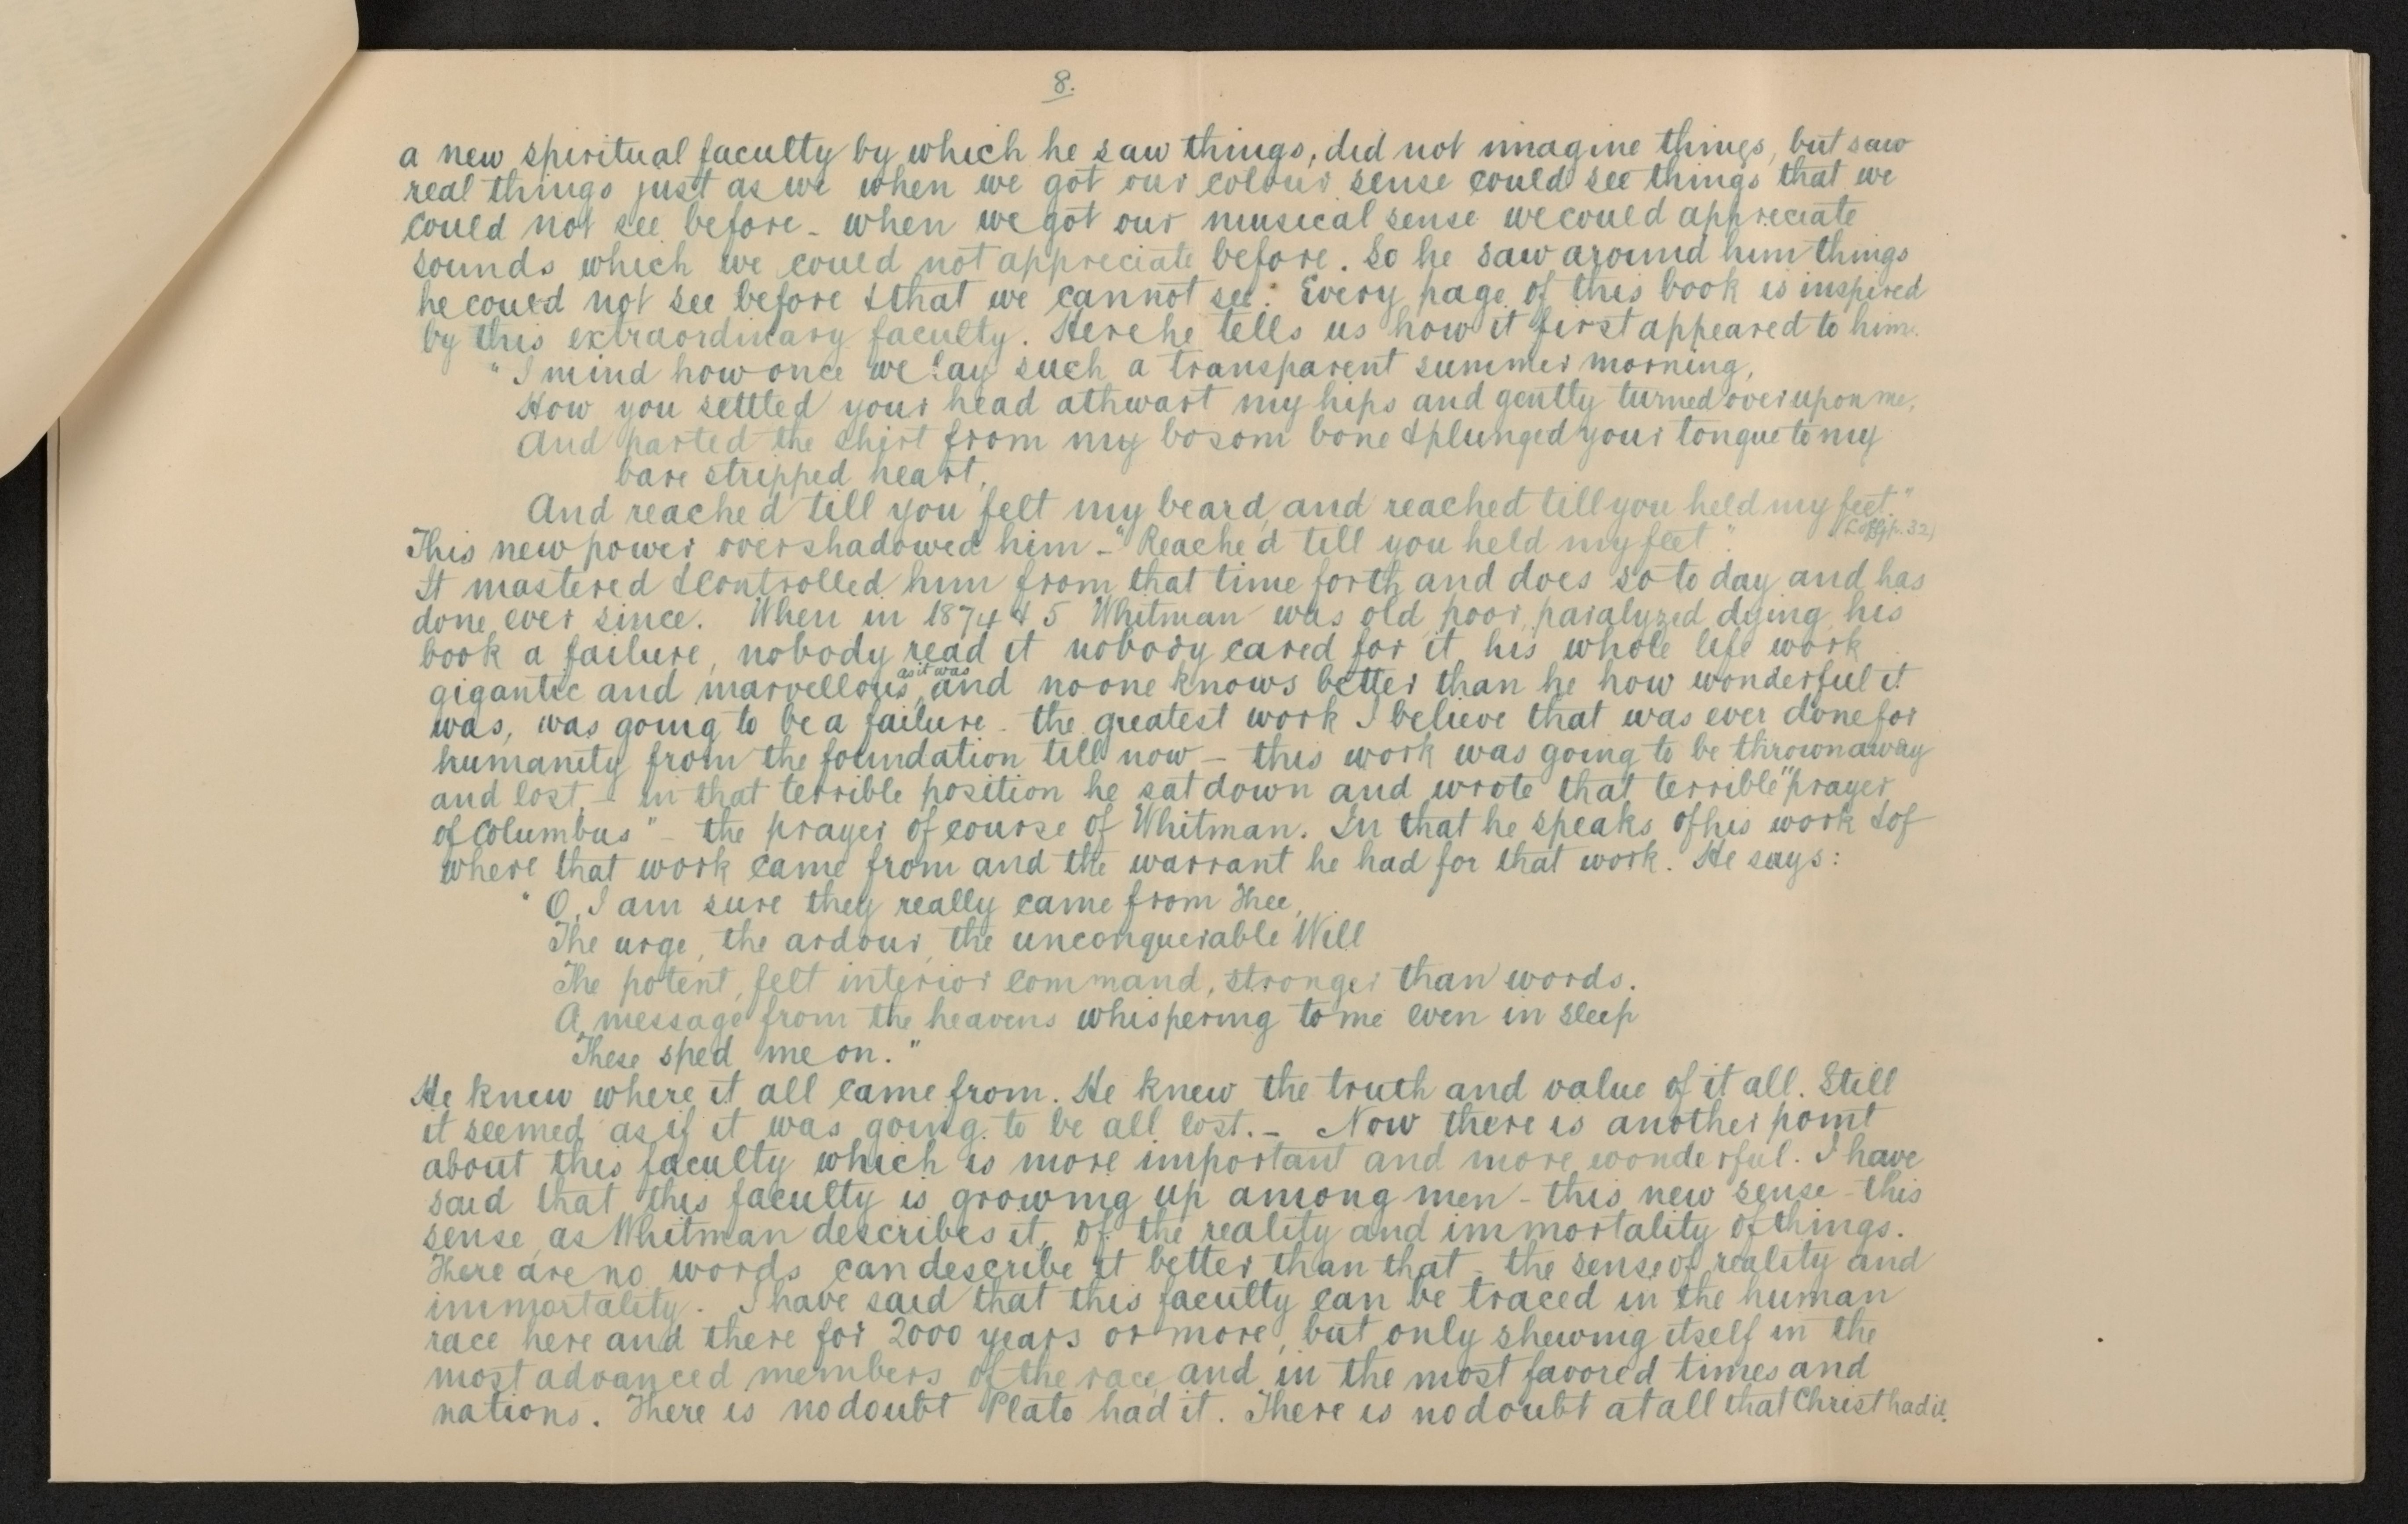 8.
a new spiritual faculty by which he saw things, did not imagine things, but saw
real things just as we when we got our colour sense could see things that we
could not see before - when we got our musical sense we could appreciate
sounds which we could not appreciate before. So he saw around him things
he could not see before & that we cannot see. Every page of this book is inspired
by this extraordinary faculty. Here he tells us how it first appeared to him.
"I mind how once we lay such a transparent summer morning,
How you settled your head athwart my hips and gently turned over upon me,
And parted the shirt from my bosom bone & plunged your tongue to my
bare stripped heart,
And reached till you felt my beard, and reached till you held my feet."
(L of G p. 32)
This new power overshadowed him - "Reached till you held my feet".
It mastered & controlled him from that time forth and does so to day and has
done ever since. When in 1874 & 5 Whitman was old, poor, paralyzed, dying, his
book a failure, nobody read it nobody cared for it, his whole life work
gigantic and marvellous as it was, and no one knows better than he how wonderful it
was, was going to be a failure - the greatest work I believe that was ever done for
humanity from the foundation till now - this work was going to be thrown away
and lost, - in that terrible position he sat down and wrote that terrible "prayer
of Columbus" - the prayer of course of Whitman. In that he speaks of his work & of
where that work came from and the warrant he had for that work. He says:
"O, I am sure they really came from Thee,
The urge, the ardour, the unconquerable Will
The potent, felt interior command, stronger than words.
A message from the heavens whispering to me even in sleep
These sped me on."
He knew where it all came from. He knew the truth and value of it all. Still
it seemed as if it was going to be all lost. - Now there is another point
about this faculty which is more important and more wonderful. I have
said that this faculty is growing up among men - this new sense - this
sense, as Whitman describes it, of the reality and immortality of things.
There are no words can describe it better than that - the sense of reality and
immortality. I have said that this faculty can be traced in the human
race here and there for 2000 years or more, but only shewing itself in the
most advanced members of the race and in the most favored times and
nations. There is no doubt Plato had it. There is no doubt at all that Christ had it.